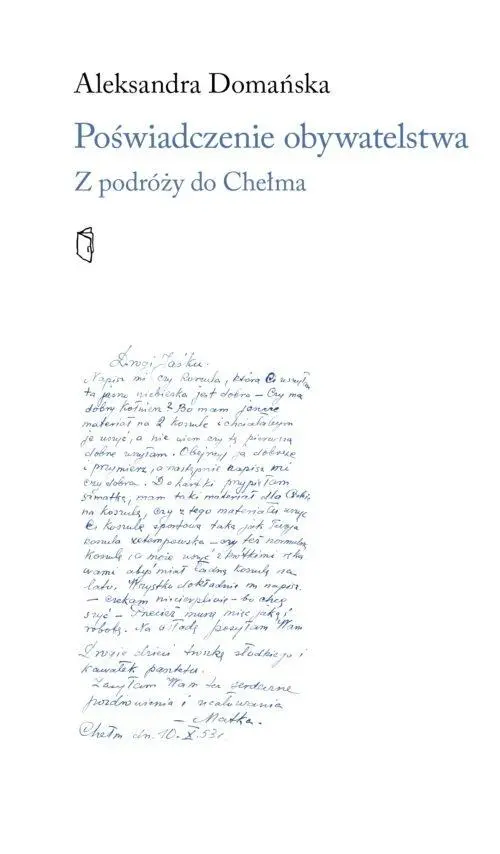 Aleksandra Domańska
Poświadczenie obywatelstwa
Z podróży do Chełma
Drogi Jaśku.
Napisz mi czy koszula, którą Ci uszyłam
ta jasno niebieska jest dobra – Czy ma
dobry kołnierz? Bo mam jeszcze
materiał na 2 koszule i chciałabym
je uszyć, a nie wiem czy tę pierwszą
dobrze uszyłam. Obejrzyj ją dobrze
i przymierz, a następnie napisz mi
czy dobra. Do kartki przypięłam
szmatkę, mam taki materiał dla Ciebie
na koszulę, czy z tego materiału uszyć
Ci koszulę sportową taką jak Twoja
koszula – czy też normalną
koszulę, a może uszyć z krótkimi ręka
wami abyś miał ładną koszulę na
lato. Wszystko dokładnie mi napisz.
– czekam niecierpliwie – bo chcę
szyć – Przecież muszę mieć jakąś
robotę. Na posyłam Wam
Drogie dzieci troszkę słodkiego i
kawałek
Zasyłam Wam serdeczne
pozdrowienia i ucałowania
– Matka.
Chełm dn. 10.X.53r.